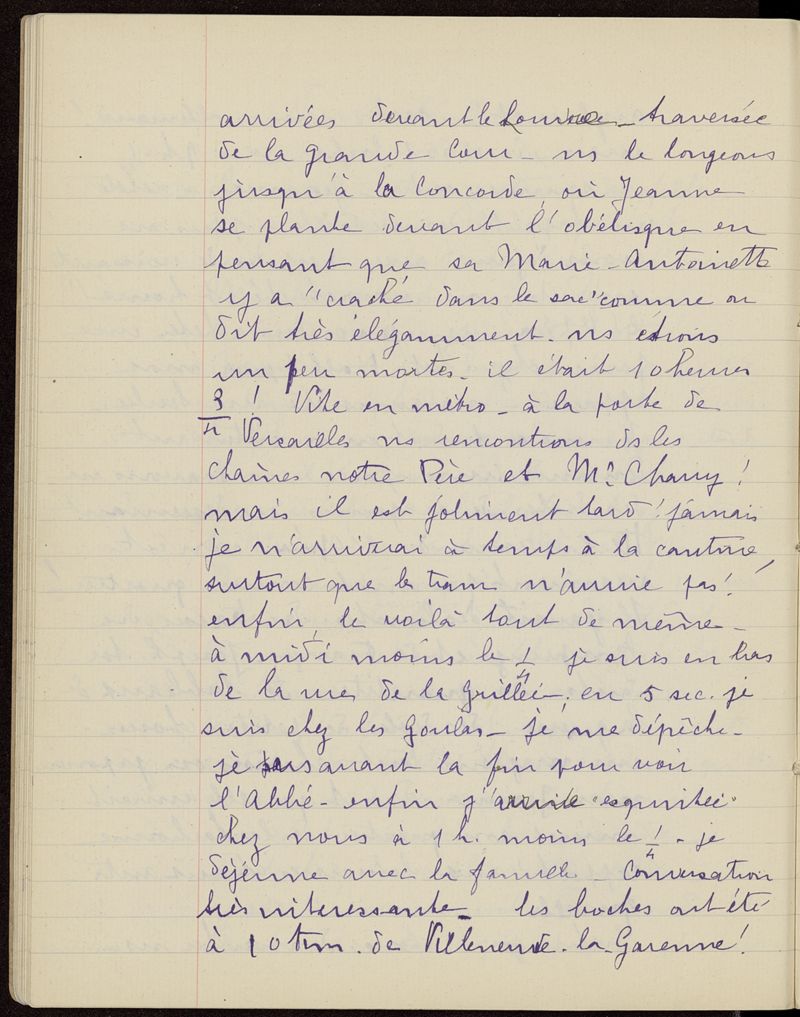 arrivées devant le Louvre - traversée
de la grande Cour - ns le longeons
jusqu'à la Concorde, où Jeanne
se plante devant l'obélisque en
pensant que sa Marie-Antoinette
y a "craché dans le sac" comme on
dit très élégamment. ns étions
un peu mortes. il était 10 heures
3/4 ! Vite en métro - à la porte de
Versailles ns rencontrons ds les
chaînes notre Père et Mr
mais il est joliment tard ! jamais
je n'arriverai à temps à la cantine,
surtout que le tram n'arrive pas !
enfin, le voilà tout de même -
à midi moins le 1/4 je suis en bas
de la rue de la ; en 5 sec. je
suis chez les Goulas - je me dépêche -
je pars avant la fin pour voir
l'Abbé - enfin j'arrive esquintée
chez nous à 1 h. moins le 1/4 - je
déjeune avec la famille - Conversation
très intéressante - les boches ont été
à 10 km. de Villeneuve-la-Garenne !